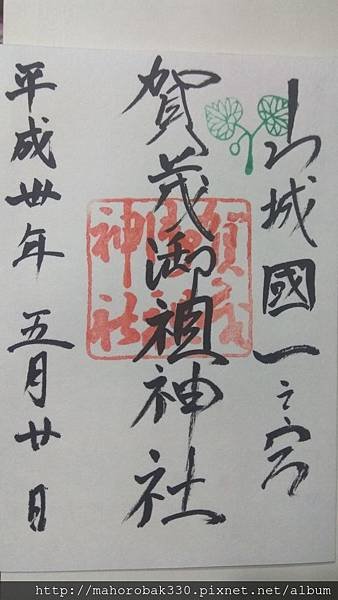 山城國一之宮
賀茂御祖神社
賀茂御祖神社
平成卅年 五月廿日
http://mahorobak330.pixnet.net/album